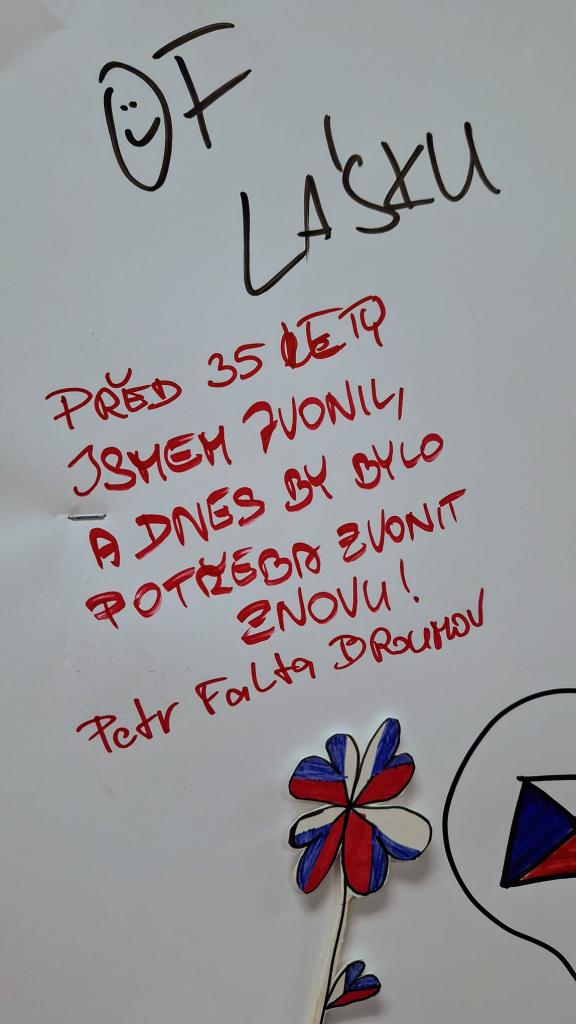 OF
LÁSKU
PŘED 35 LETY
JSMEM ZVONILI,
A DNES BY BYLO
POTŘEBA ZVONIT
ZNOVU!
Petr Falta BROUMOV